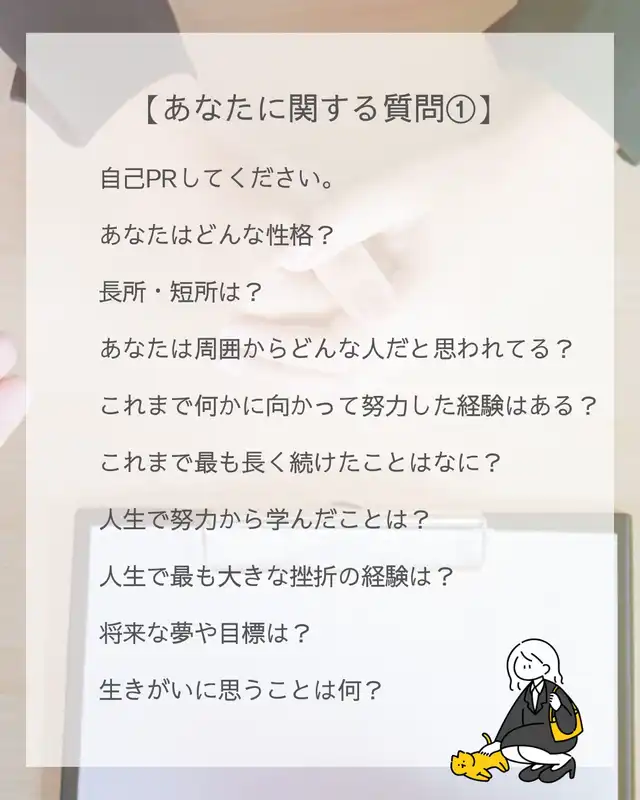 【あなたに関する質問①】
自己PRしてください。
あなたはどんな性格？
長所・短所は？
あなたは周囲からどんな人だと思われてる？
これまで何かに向かって努力した経験はある？
これまで最も長く続けたことはなに？
人生で努力から学んだことは？
人生で最も大きな挫折の経験は？
将来な夢や目標は？
生きがいに思うことは何？